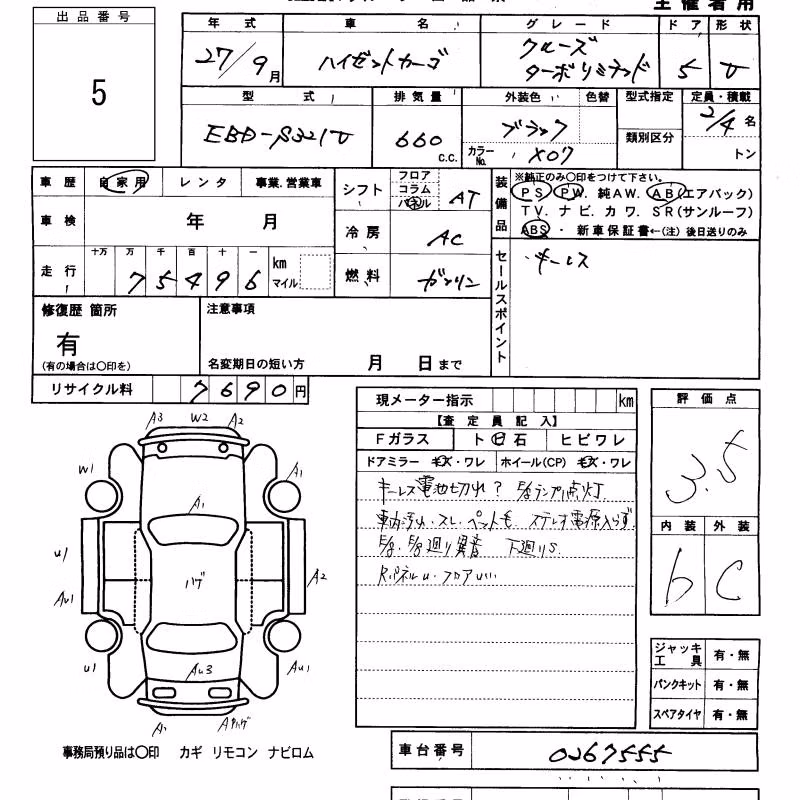 主催者用
出品番号
5
年式 車名 グレード ドア 形状
27/9月 ハイゼットカーゴ クルーズ 5 V
ターボリミテッド
型式 排気量 外装色 色替 型式指定 定員・積載
EBD-S321V 660 c.c. ブラック 2/4名
カラーNo. X07 類別区分 トン
車歴 自家用 レンタ 事業.営業車
シフト フロア コラム パネル AT
装備品 ※純正のみ〇印をつけて下さい。
PS PW. 純AW. AB(エアバック)
TV. ナビ. カワ. SR(サンルーフ)
ABS ・ 新車保証書←(注) 後日送りのみ
車検 年 月
冷房 AC
走行 十万 万 千 百 十 一
75496 km マイル
燃料 ガソリン
セールスポイント
・キーレス
修復歴 箇所
有
(有の場合は〇印を)
注意事項
名変期日の短い方 月 日まで
リサイクル料 7690円
現メーター指示 km
【査定員記入】
Fガラス ト ビ 石 ヒビワレ
ドアミラー キズ・ワレ ホイール(CP) キズ・ワレ
キーレス電池切れ? E/gランプ点灯
車内汚れ・スレ・ペット毛 ステレオ電源入らず
E/g. E/g廻り異音 下廻りS
Rパネルu・フロアu
評価点
3.5
内装 外装
b C
A3 W2 A2
W1 A1
A1
U1
ハゲ A2
AU1
U1 AU3 AU1
A1 Aハゲ
ジャッキ工具 有・無
パンクキット 有・無
スペアタイヤ 有・無
事務局預り品は〇印 カギ リモコン ナビロム
車台番号 0267555